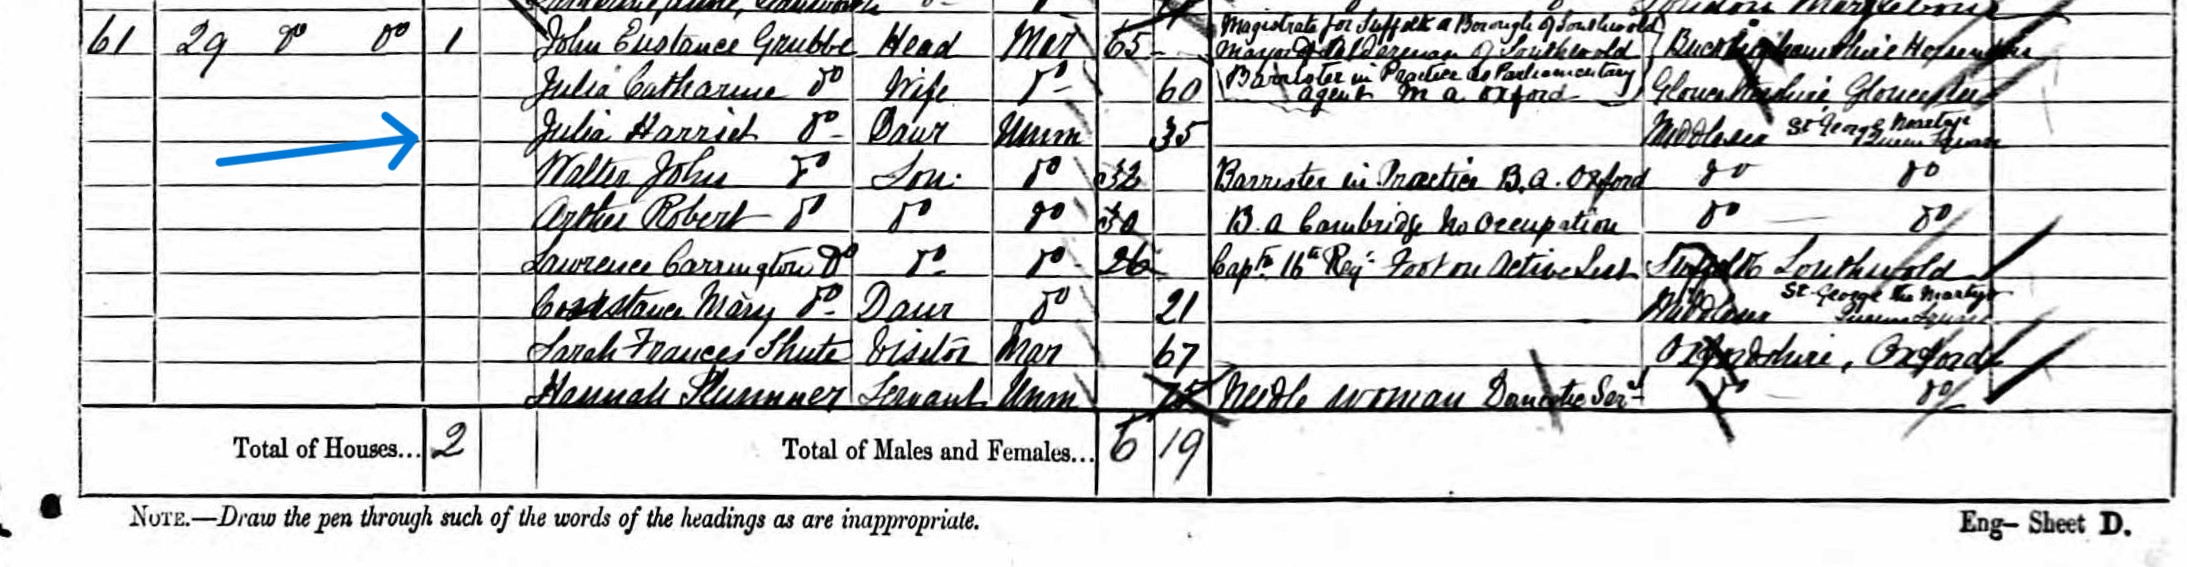 61 29 do do 1 John Eustance Grubbe Head Mar 65 Magistrate for Suffolk & Borough of Southwold Mayor & Alderman of Southwold Buckinghamshire
Julia Catharine do Wife do 60 Barrister in Practice as Parliamentary agent M A Oxford Gloucestershire, Gloucester
Julia Harriet do Daur Unm 35 Middlesex St George Martyr Queen Square
Walter John do Son do 32 Barrister in Practice B.A. Oxford do do
Arther Robert do do do 30 B.A Cambridge No Occupation do do
Lawrence Carrington do do do 26 Captn 16th Regt Foot on Active List Suffolk Southwold
Constance Mary do Daur do 21 Middlesex St George the Martyr Queen Square
Sarah Frances Shute Visitor Mar 67 Oxfordshire, Oxford
Hannah Plummer Servant Unm 75 Needle woman Domestic Servt do do
Total of Houses... 2 Total of Males and Females... 6 19
NOTE.—Draw the pen through such of the words of the headings as are inappropriate.
Eng– Sheet D.